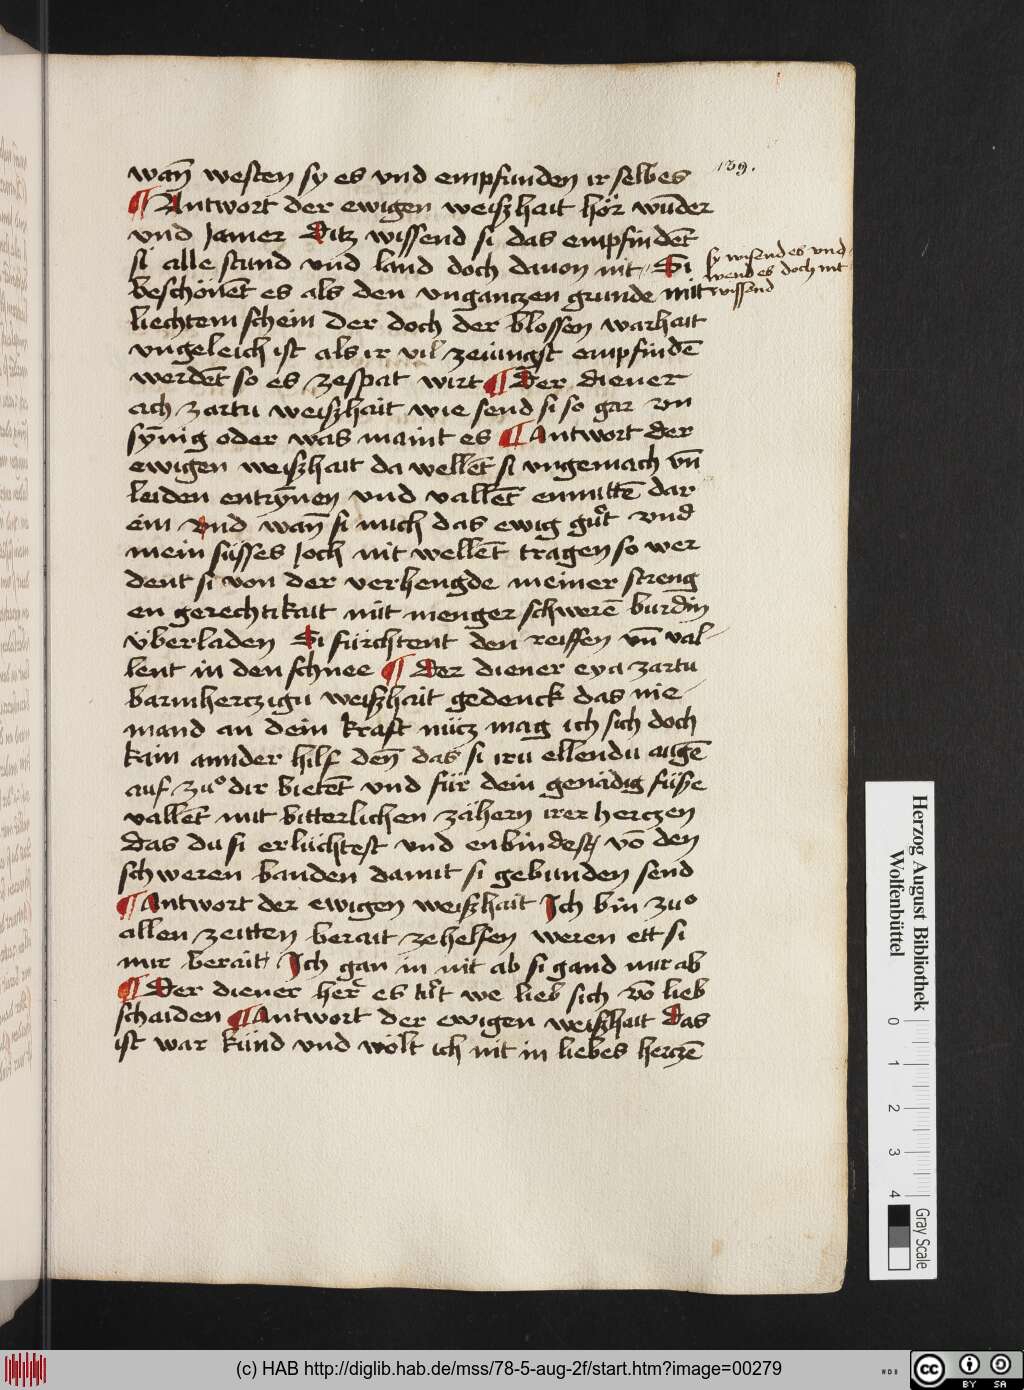 139.
wan̄ westen sy es vnd empfunden ir selbes
¶ Antwort der ewigen weiſzhait hör wunder
vnd Jamer Ditz wissend si das empfindēt
si alle stund vnd land doch dauon nit Si
sy wisend es vnd
wend es doch nit
wissend
beschönēt es als den vnganczen grunde mitt
liechtem schein Der doch der blossen warhait
vngeleich ist als ir vil zeiungst empfindē
werdēt so es zespat wirt ¶ Der diener
ach zartu weiſzhait wie send si so gar vn
sȳnig oder was maint es ¶ Antwort der
ewigen weiſzhait da wellēt si vngemach vn̄
leiden entrȳnen vnd vallēt enmittē dar
ein vnd wan̄ si mich das ewig guͦt vnd
mein süsses Joch nit wellēt tragen so wer
dent si von der verhengde meiner streng
en gerechtikait mit menger schwerē burdin
überladen Si fürchtent den reiffen vn̄ val
lent in den schnee ¶ Der diener eya zartu
barmherczigu weiſzhait gedenck das nie
mand an dein kraft nücz mag ich sich doch
kain annder hilf den̄ das si iru ellendu augē
auf zuͦ dir bietēt vnd für dein genädig füsse
vallēt mit bitterlichen zähern irer herczen
das du si erlüchtest vnd enbindest vō den
schweren banden damit si gebunden send
¶ Antwort der ewigen weiſzhait Ich bin zuͦ
allen zeitten berait zehelfen weren ett si
mir berait Ich gan in nit ab si gand mir ab
¶ Der diener her es tuͦt we lieb sich vō lieb
schaiden ¶ Antwort der ewigen weiſzhait Das
ist war künd vnd wölt ich nit in liebes herczē
Herzog August Bibliothek
Wolfenbüttel
0
1
2
3
4
Gray Scale
(c) HAB http://diglib.hab.de/mss/78-5-aug-2f/start.htm?image=00279
cc
BY SA